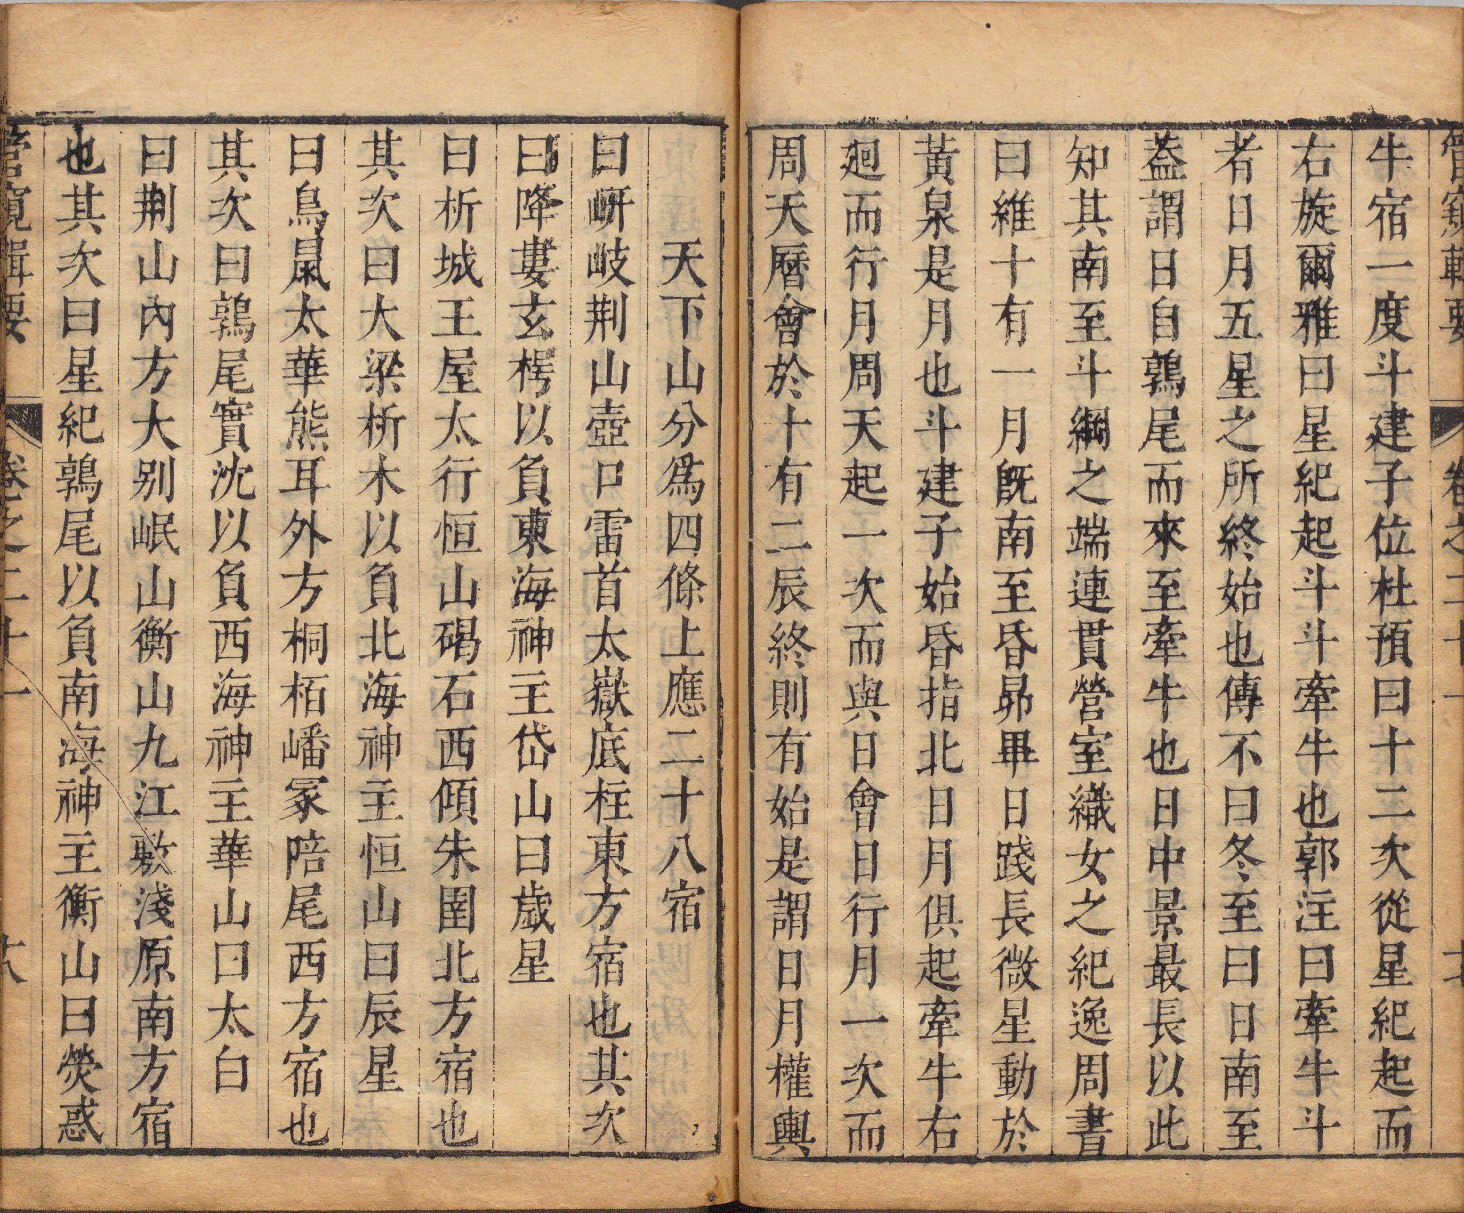 管窺輯要 卷之二十一 十七
牛宿一度斗建子位杜預曰十二次從星紀起而
右旋爾雅曰星紀起斗斗牽牛也郭注曰牽牛斗
者日月五星之所終始也傳不曰冬至曰日南至
葢謂日自鶉尾而來至牽牛也日中景最長以此
知其南至斗綱之端連貫營室織女之紀逸周書
曰維十有一月旣南至昏昴畢日踐長微星動於
黃泉是月也斗建子始昏指北日月俱起牽牛右
廻而行月周天起一次而與日會日行月一次而
周天曆會於十有二辰終則有始是謂日月權輿
天下山分為四條上應二十八宿
曰岍岐荆山壺口雷首太嶽底柱東方宿也其次
曰降婁玄枵以負東海神主岱山曰歲星
曰析城王屋太行恒山碣石西傾朱圉北方宿也
其次曰大梁析木以負北海神主恒山曰辰星
曰鳥鼠太華熊耳外方桐栢嶓冢陪尾西方宿也
其次曰鶉尾實沈以負西海神主華山曰太白
曰荆山內方大别岷山衡山九江敷淺原南方宿
也其次曰星紀鶉尾以負南海神主衡山曰熒惑
管窺輯要 卷之二十一 十八